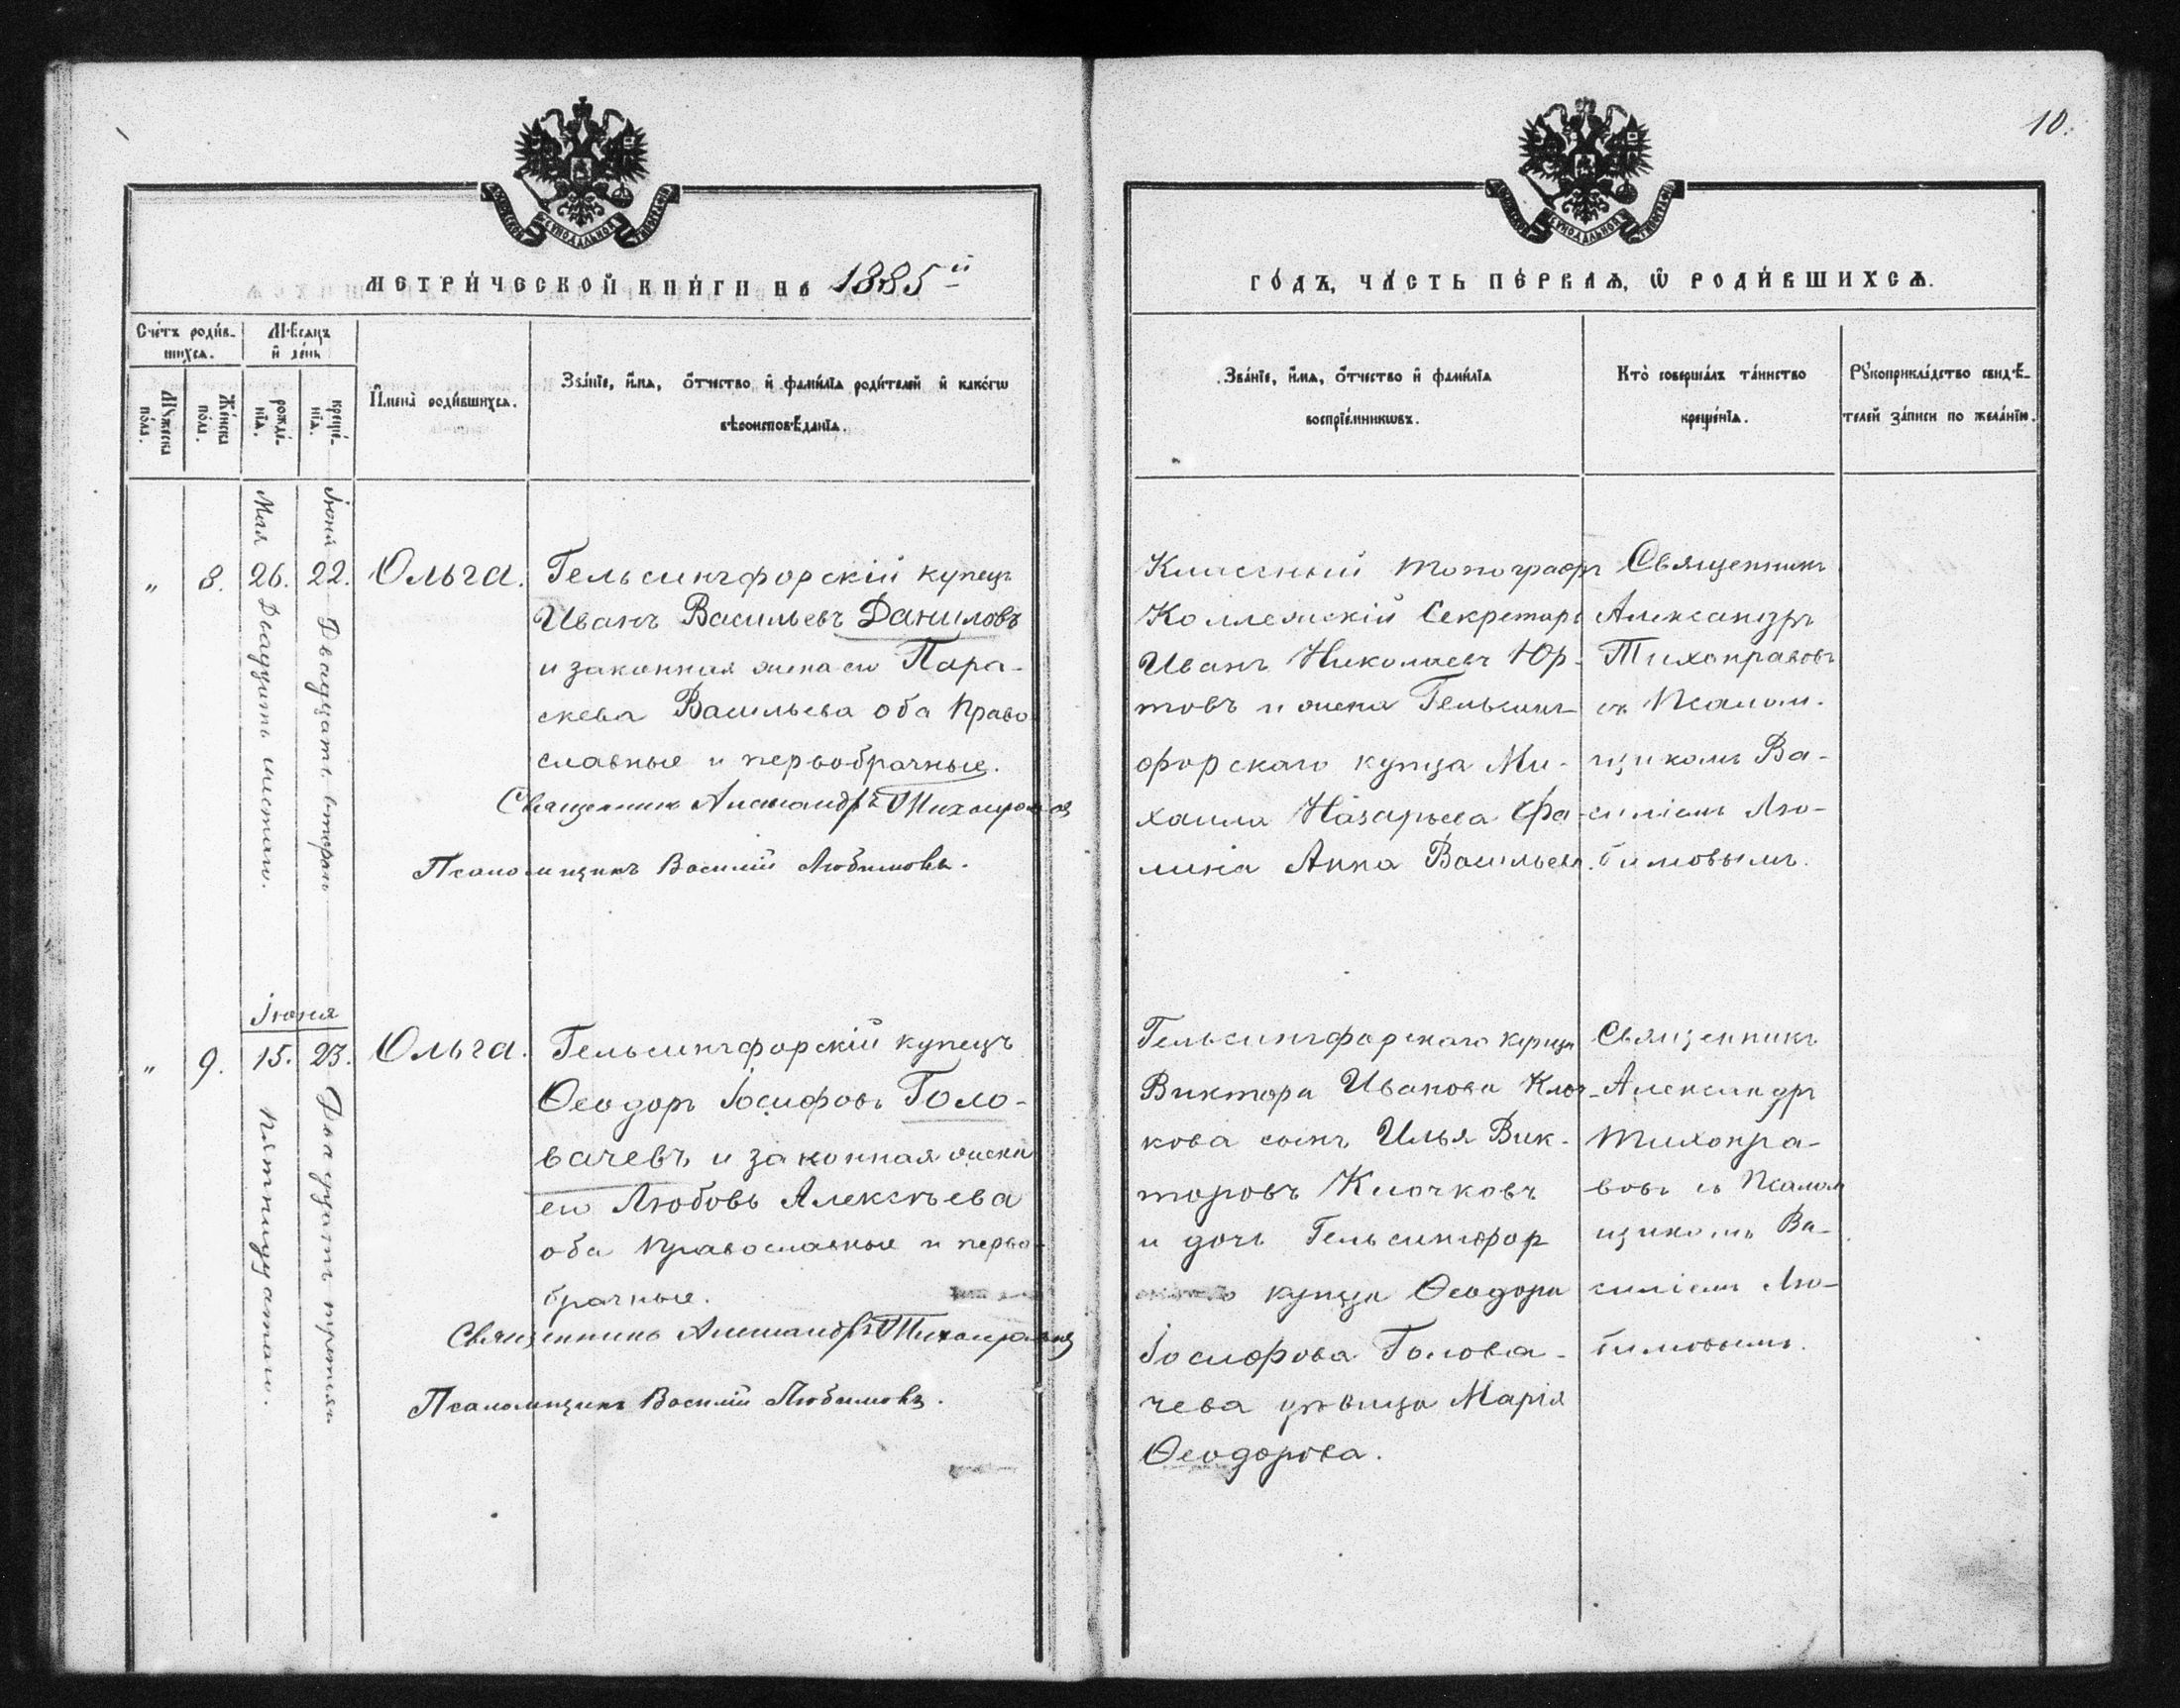 10.
МЕТРИ́ЧЕСКОЙ КНИ́ГИ НА 1885й
ГО́ДЪ, ЧА́СТЬ ПЕ́РВАѦ, Ѿ РОДИ́ВШИХСѦ.
Сче́тъ роди́в-
шихсѧ.
Мѣ́сѧцъ
и де́нь
Му́жеска
по́ла.
Же́нска
по́ла.
рожде́-
нїѧ.
креще́-
нїѧ.
Имена̀ роди́вшихсѧ.
Зва́нїе, и́мѧ, ѻ́тчество и фами́лїа роди́телей и како́гѡ
вѣроисповѣ́данїѧ.
Зва́нїе, и́мѧ, ѻ́тчество и фами́лїѧ
воспрїе́мникѡвъ.
Кто̀ соверша́лъ та́инство
креще́нїѧ.
Рꙋкоприкла́дство свидѣ́-
телей за́писи по жела́нїю.
„ 8.
Мая 26. Двадцать шестаго.
Іюня 22. Двадцать втораго
Ольга.
Гельсингфорскій купецъ
Иванъ Васильевъ Даниловъ
и законная жена его Пара-
скева Васильева оба право
славные и первобрачные.
Священникъ Александръ Тихонравовъ
Псаломщикъ Василій Любимовъ.
Классный топографъ
Коллежскій Секретарь
Иванъ Николаевъ Юр-
товъ и жена Гельсинг-
форскаго купца Ми-
хаила Назарьева Фа-
лина Анна Васильева.
Священникъ
Александръ
Тихонравовъ
съ Псалом-
щикомъ Ва-
силіемъ Лю-
бимовымъ.
Іюня
„ 9.
15. Пятнадцатаго.
23. Двадцать третьяго.
Ольга.
Гельсингфорскій купецъ
Ѳеодоръ Іосифовъ Голо-
вачевъ и законная жена
его Любовь Алексѣева
оба православные и перво-
брачные.
Священникъ Александръ Тихонравовъ
Псаломщикъ Василій Любимовъ.
Гельсингфорскаго купца
Виктора Иванова Клоч-
кова сынъ Илья Вик-
торовъ Клочковъ
и дочь Гельсингфор
купца Ѳеодора
Іосифова Голова-
чева дѣвица Марія
Ѳеодорова.
Священникъ
Александръ
Тихонра-
вовъ съ Псалом
щикомъ Ва-
силіемъ Лю-
бимовымъ.